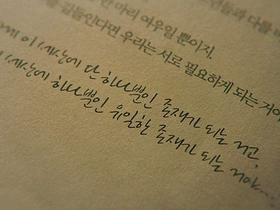 한 마리 여우일 뿐이지.
길들인다면 우리는 서로 필요하게 되는 거야
게 이 세상에 단 하나뿐인 존재가 되는 거고,
세상에 하나뿐인 유일한 존재가 되는 거야...